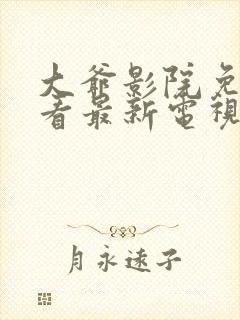 大爺影院免
看最新電視
月永遠子